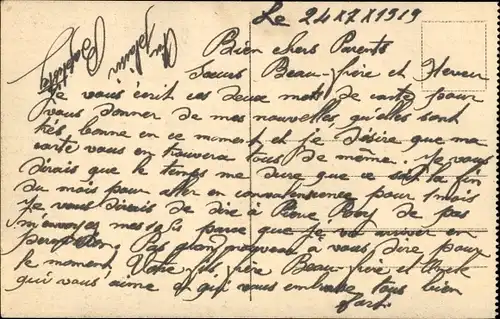 Le 24 X 7 X 1919
Bien chers Parents
Sœurs Beau-frère et Neveu
Je vous écrit ces deux mots de carte pour
vous donner de mes nouvelles, qu'elles sont
très, bonne en ce moment et je désire que ma
carte vous en trouvera tous de même. Je vous
dirais que le temps me dure que ce soit la fin
du mois pour aller en convalescence pour 1 mois
Je vous dirais de dire à Pierre de pas
m'envoyez mes parce que je vais arriver en
permission. Pas grand nouveau à vous dire pour
le moment, Votre fils, frère Beau-frère et Oncle
qui vous aime et qui vous embrasse tous bien
fort.
Au plaisir
Baptiste